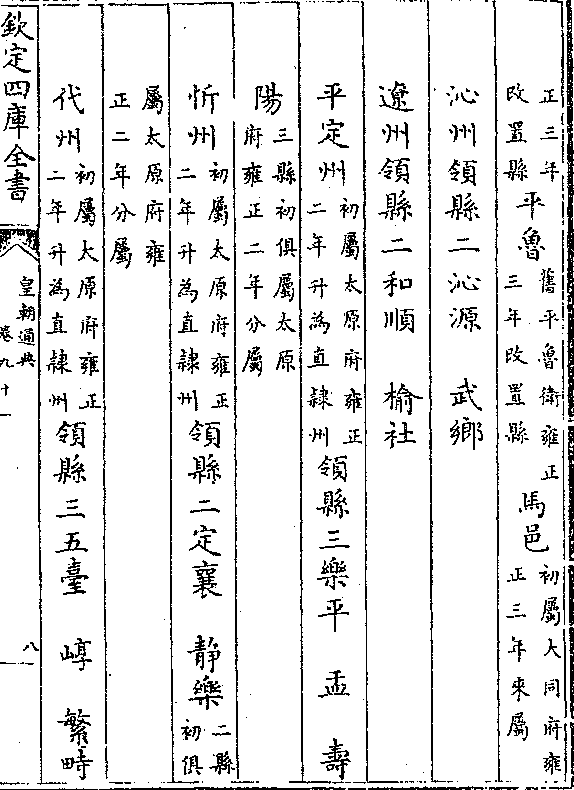 正三年改置縣 平魯 舊平魯衛雍正三年改置縣 馬邑 初屬大同府雍正三年來屬
沁州領縣二沁源 武鄉
遼州領縣二和順 榆社
平定州 初屬太原府雍正二年升為直隸州 領縣三樂平 盂 壽
陽 三縣初俱屬太原府雍正二年分屬
忻州 初屬太原府雍正二年升為直隸州 領縣二定襄 靜樂 二縣初俱
屬太原府雍正二年分屬
代州 初屬太原府雍正二年升為直隸州 領縣三五臺 崞 繁畤
欽定四庫全書 皇朝通典 卷九十一 八